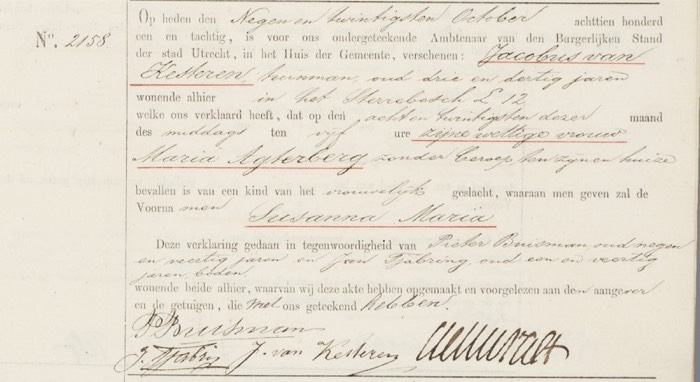 No. 2158.
Op heden den Negen en twintigsten October achttien honderd
een en tachtig, is voor ons ondergeteekende Ambtenaar van den Burgerlijken Stand
der stad Utrecht, in het Huis der Gemeente, verschenen: Jacobus van
Kesteren, tuinman, oud drie en dertig jaren
wonende alhier in het Sterrebosch L 12
welke ons verklaard heeft, dat op den acht en twintigsten dezer maand
des middags ten vijf ure zijne wettige vrouw
Maria Agterberg zonder beroep ten zijnen huize
bevallen is van een kind van het vrouwelijk geslacht, waaraan men geven zal de
Voorna men Susanna Maria
Deze verklaring gedaan in tegenwoordigheid van Pieter Buisman, oud negen
en veertig jaren en Jan Tjabring, oud een en veertig
jaren, boden
wonende beide alhier, waarvan wij deze akte hebben opgemaakt en voorgelezen aan den aangever
en de getuigen, die met ons geteekend hebben.
PBuisman
J. Tjabring J. van Kesteren